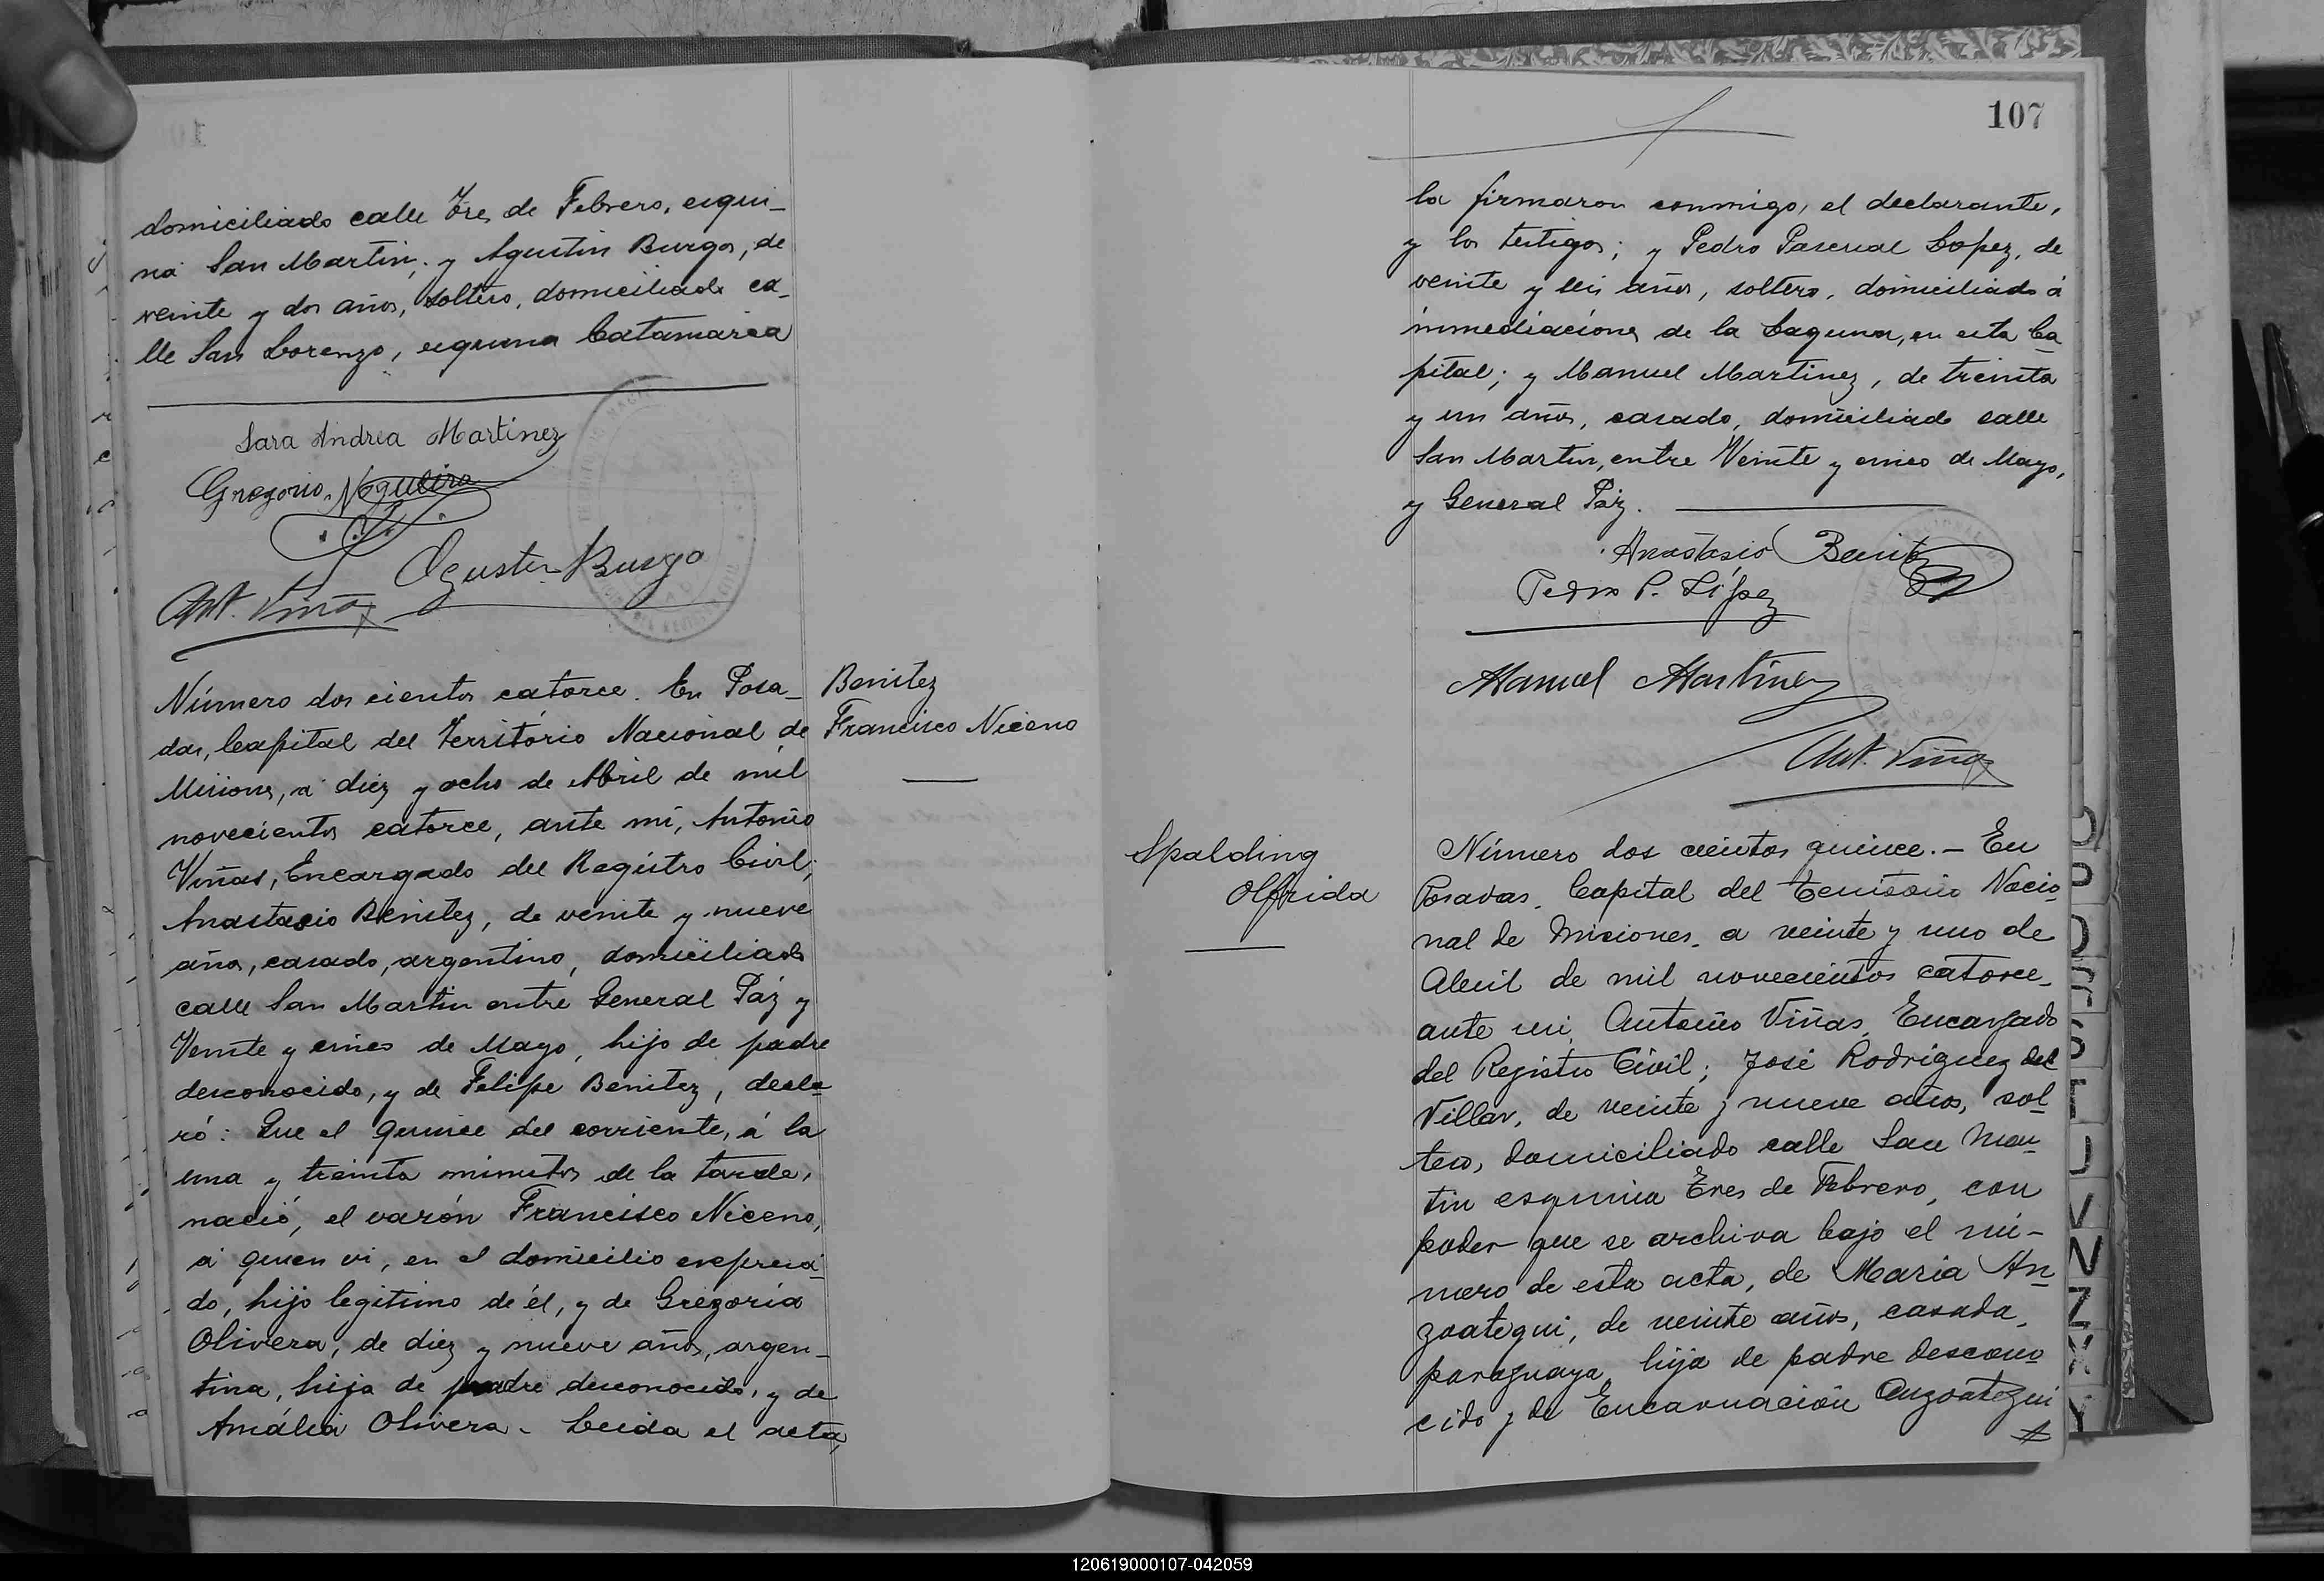 domiciliado calle Tres de Febrero, esqui-
na San Martin; y Agustin Burgos, de
veinte y dos años, soltero, domiciliado ca-
lle San Lorenzo, esquina Catamarca
Sara Andrea Martinez
Gregorio Nogueira
Agustin Burgo
Ant. Viñas
Número dos cientos catorce. En Posa-
das, Capital del Territorio Nacional de
Misiones, á diez y ocho de Abril de mil
novecientos catorce, ante mi, Antonio
Viñas, Encargado del Registro Civil;
Anastasio Benitez, de veinte y nueve
años, casado, argentino, domiciliado
calle San Martin entre General Páz y
Veinte y cinco de Mayo, hijo de padre
desconocido, y de Felipe Benitez, decla-
ró: Que el quince del corriente, á la
una y treinta minutos de la tarde,
nació, el varón Francisco Niceno,
á quien vi, en el domicilio expresa-
do, hijo legitimo de él, y de Gregoria
Olivera, de diez y nueve años, argen-
tina, hija de padre desconocido, y de
Amália Olivera. Leida el acta,
Benitez
Francisco Niceno
107
la firmaron conmigo, el declarante,
y los testigos; y Pedro Pascual Lopez, de
veinte y seis años, soltero, domiciliado á
inmediaciones de la Laguna, en esta Ca-
pital; y Manuel Martinez, de treinta
y un años, casado, domiciliado calle
San Martin, entre Veinte y cinco de Mayo,
y General Páz.
Anastasio Benitez
Pedro P. López
Manuel Martinez
Ant. Viñas
Spalding
Olfrida
Número dos cientos quince.- En
Posadas, Capital del Territorio Nacio-
nal de Misiones, a veinte y uno de
Abril de mil novecientos catorce,
ante mi, Antonio Viñas, Encargado
del Registro Civil; José Rodriguez del
Villar, de veinte y nueve años, sol-
tero, domiciliado calle San Mar-
tin esquina Tres de Febrero, con
poder que se archiva bajo el nú-
mero de esta acta, de Maria An-
zoategui, de veinte años, casada,
paraguaya, hija de padre descono-
cido y de Encarnación Anzoategui
O
P
Q
R
S
T
U
V
W
Z
X
Y
120619000107-042059